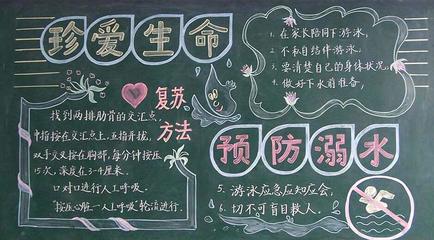 珍爱生命
复苏
方法
找到两排肋骨的交汇点,
中指按在交汇点上,五指开拢,
双手交叉按在胸部,每分钟按压
15次,深度在3-4厘米.
口对口进行人工呼吸.
"按压心脏—人工呼吸"轮流进行.
1. 在家长陪同下游泳,
2. 不私自结伴游泳.
3. 要清楚自己的身体状况.
4. 做好下水前准备,
预防溺水
5. 游泳应急应知应会.
6. 切不可盲目救人.